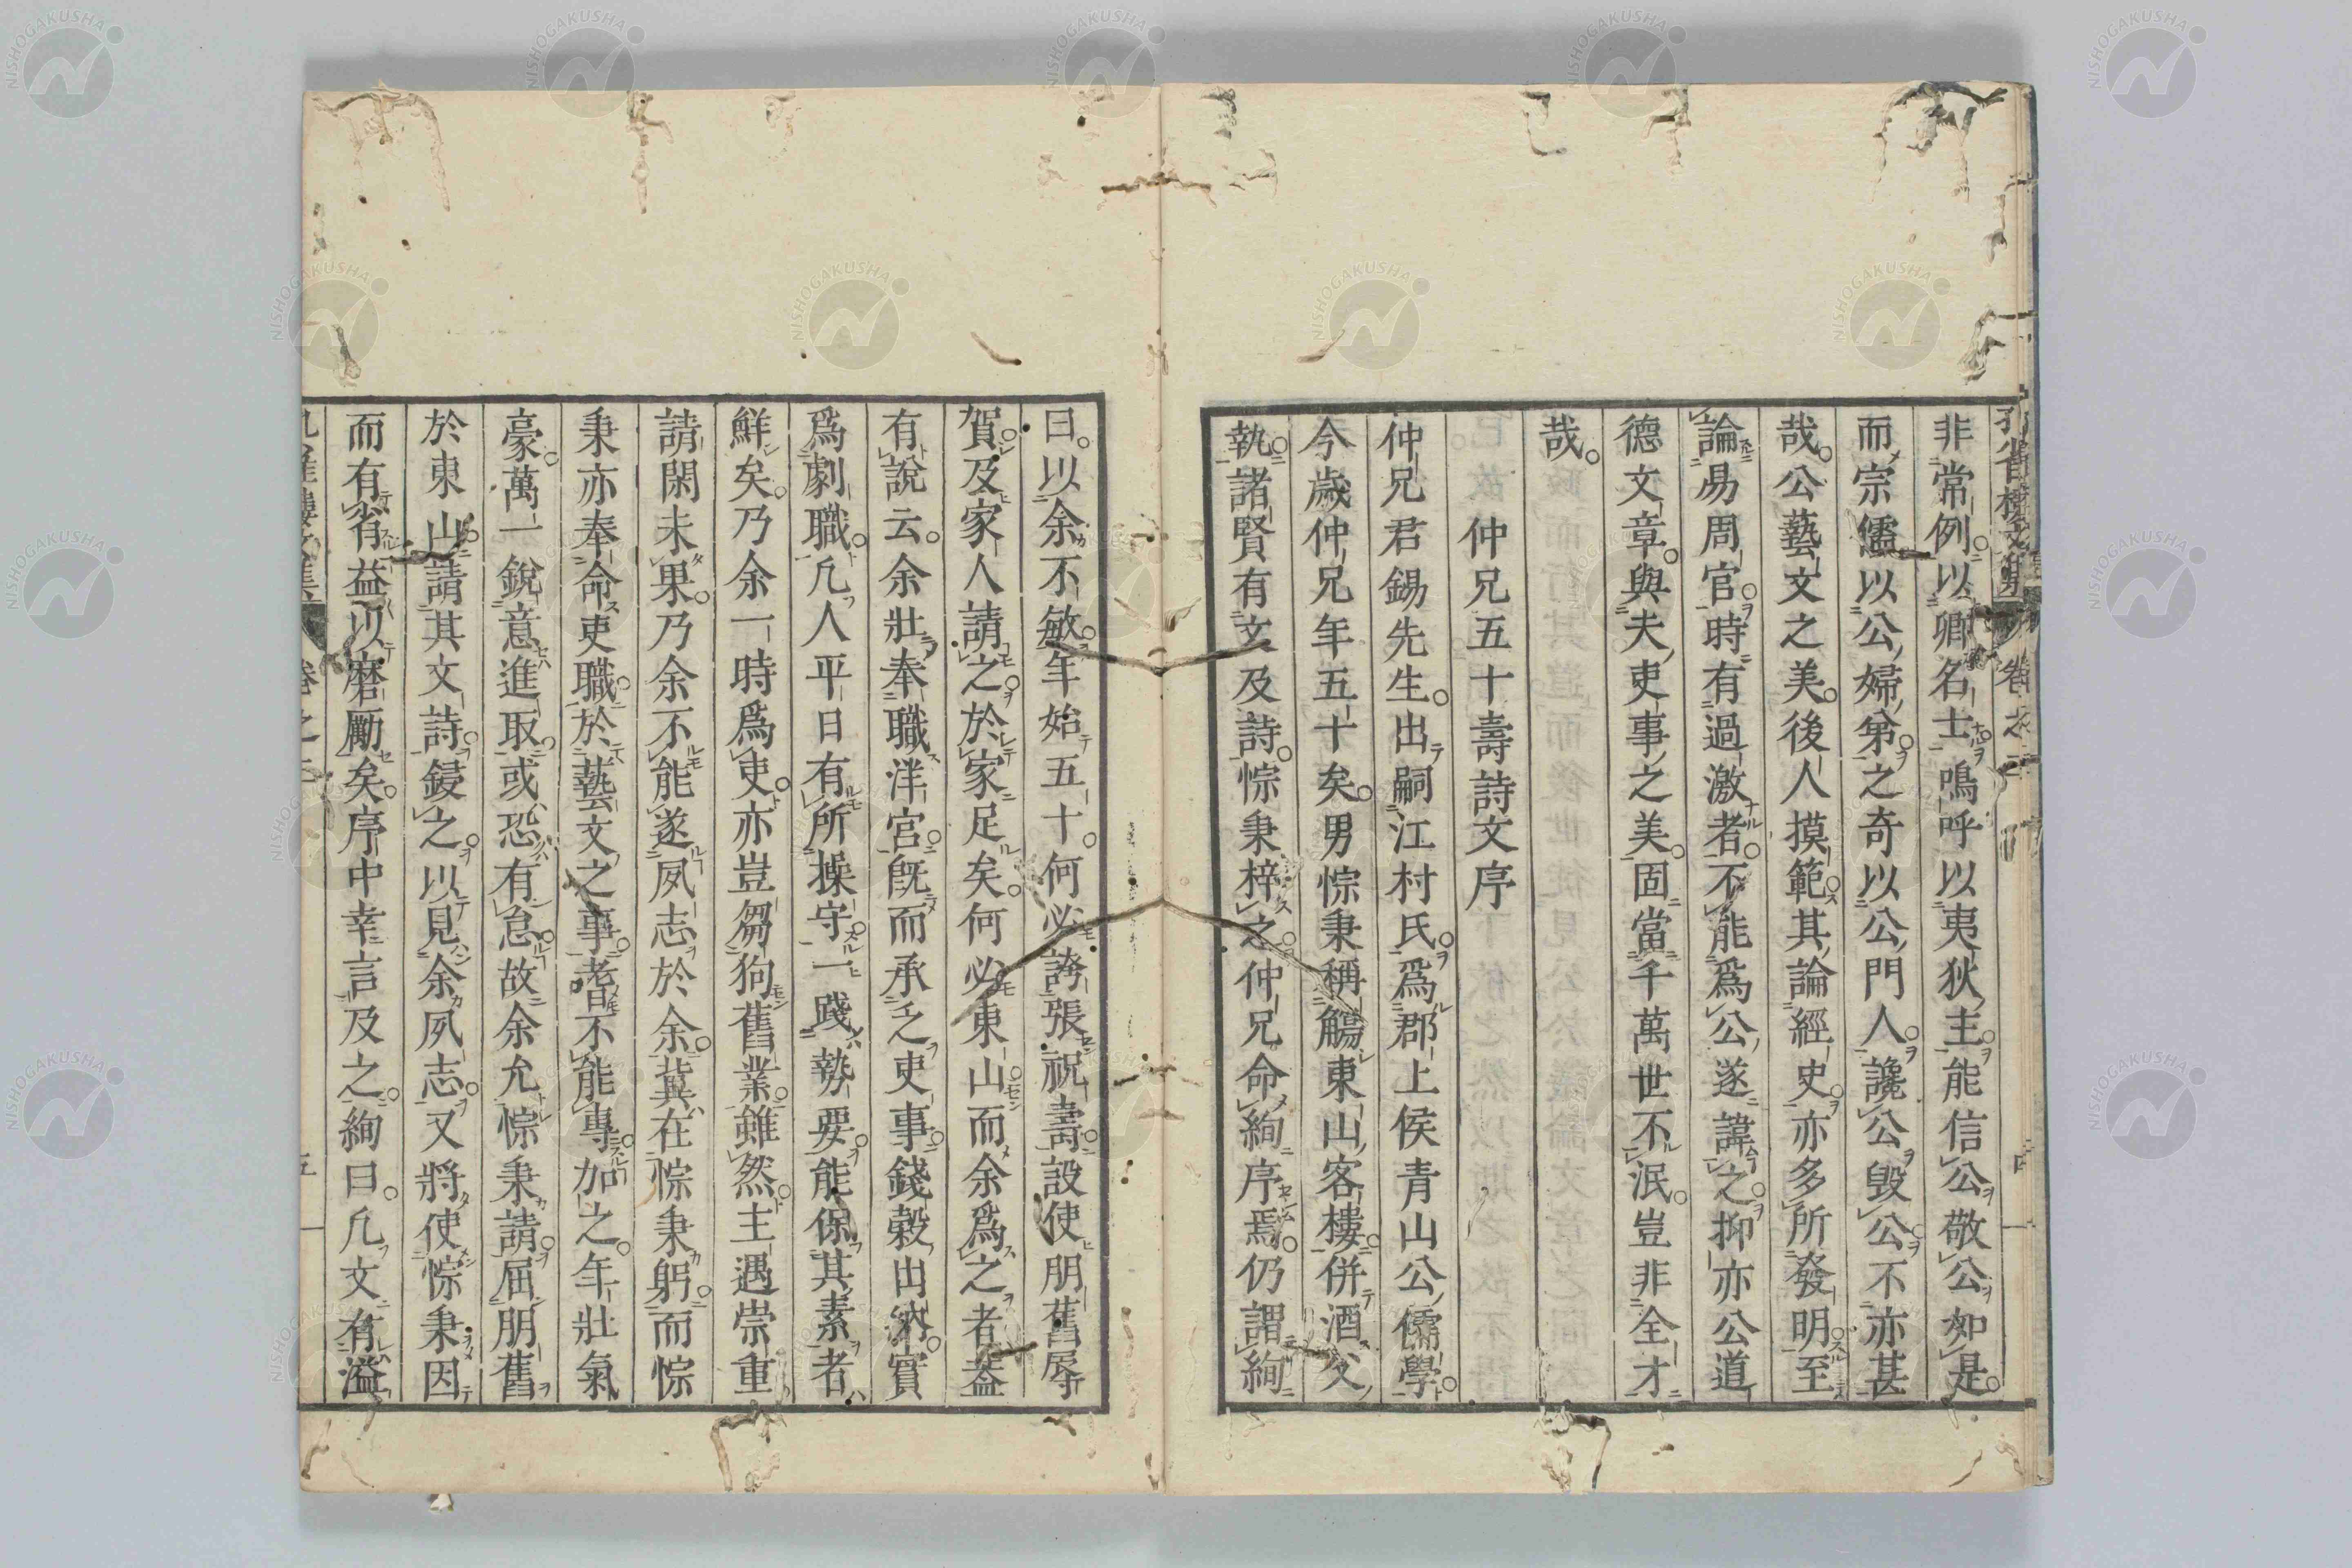 非常例以卿名士鳴呼以夷狄主能信公敬公如是
而宗儒以公婦弟之奇以公門人讒公毀公不亦甚
哉公藝文之美後人摸範其論經史亦多所發明至
論易周官時有過激者不能爲公遂諱之抑亦公道
德文章與夫吏事之美固當千萬世不泯豈非全才
哉
仲兄五十壽詩文序
仲兄君錫先生出嗣江村氏爲郡上侯青山公儒學
今歲仲兄年五十矣男悰秉稱觴東山客樓併酒父
執諸賢有文及詩悰秉梓之仲兄命絢序焉仍謂絢
曰以余不敏年始五十何必誇張祝壽設使朋舊辱
賀及家人請之於家足矣何必東山而余爲之者蓋
有說云余壯奉職泮宮既而承乏吏事錢穀出納實
爲劇職凡人平日有所操守一踐勢要能保其素者
鮮矣乃余一時爲吏亦豈芻狗舊業雖然主遇崇重
請閑未果乃余不能遂夙志於余冀在悰秉躬而悰
秉亦奉命吏職於藝文之事耆不能專加之年壯氣
豪萬一銳意進取或恐有怠故余允悰秉請屈朋舊
於東山請其文詩鋟之以見余夙志又將使悰秉因
而有省益以磨勵矣序中幸言及之絢曰凡文有溢